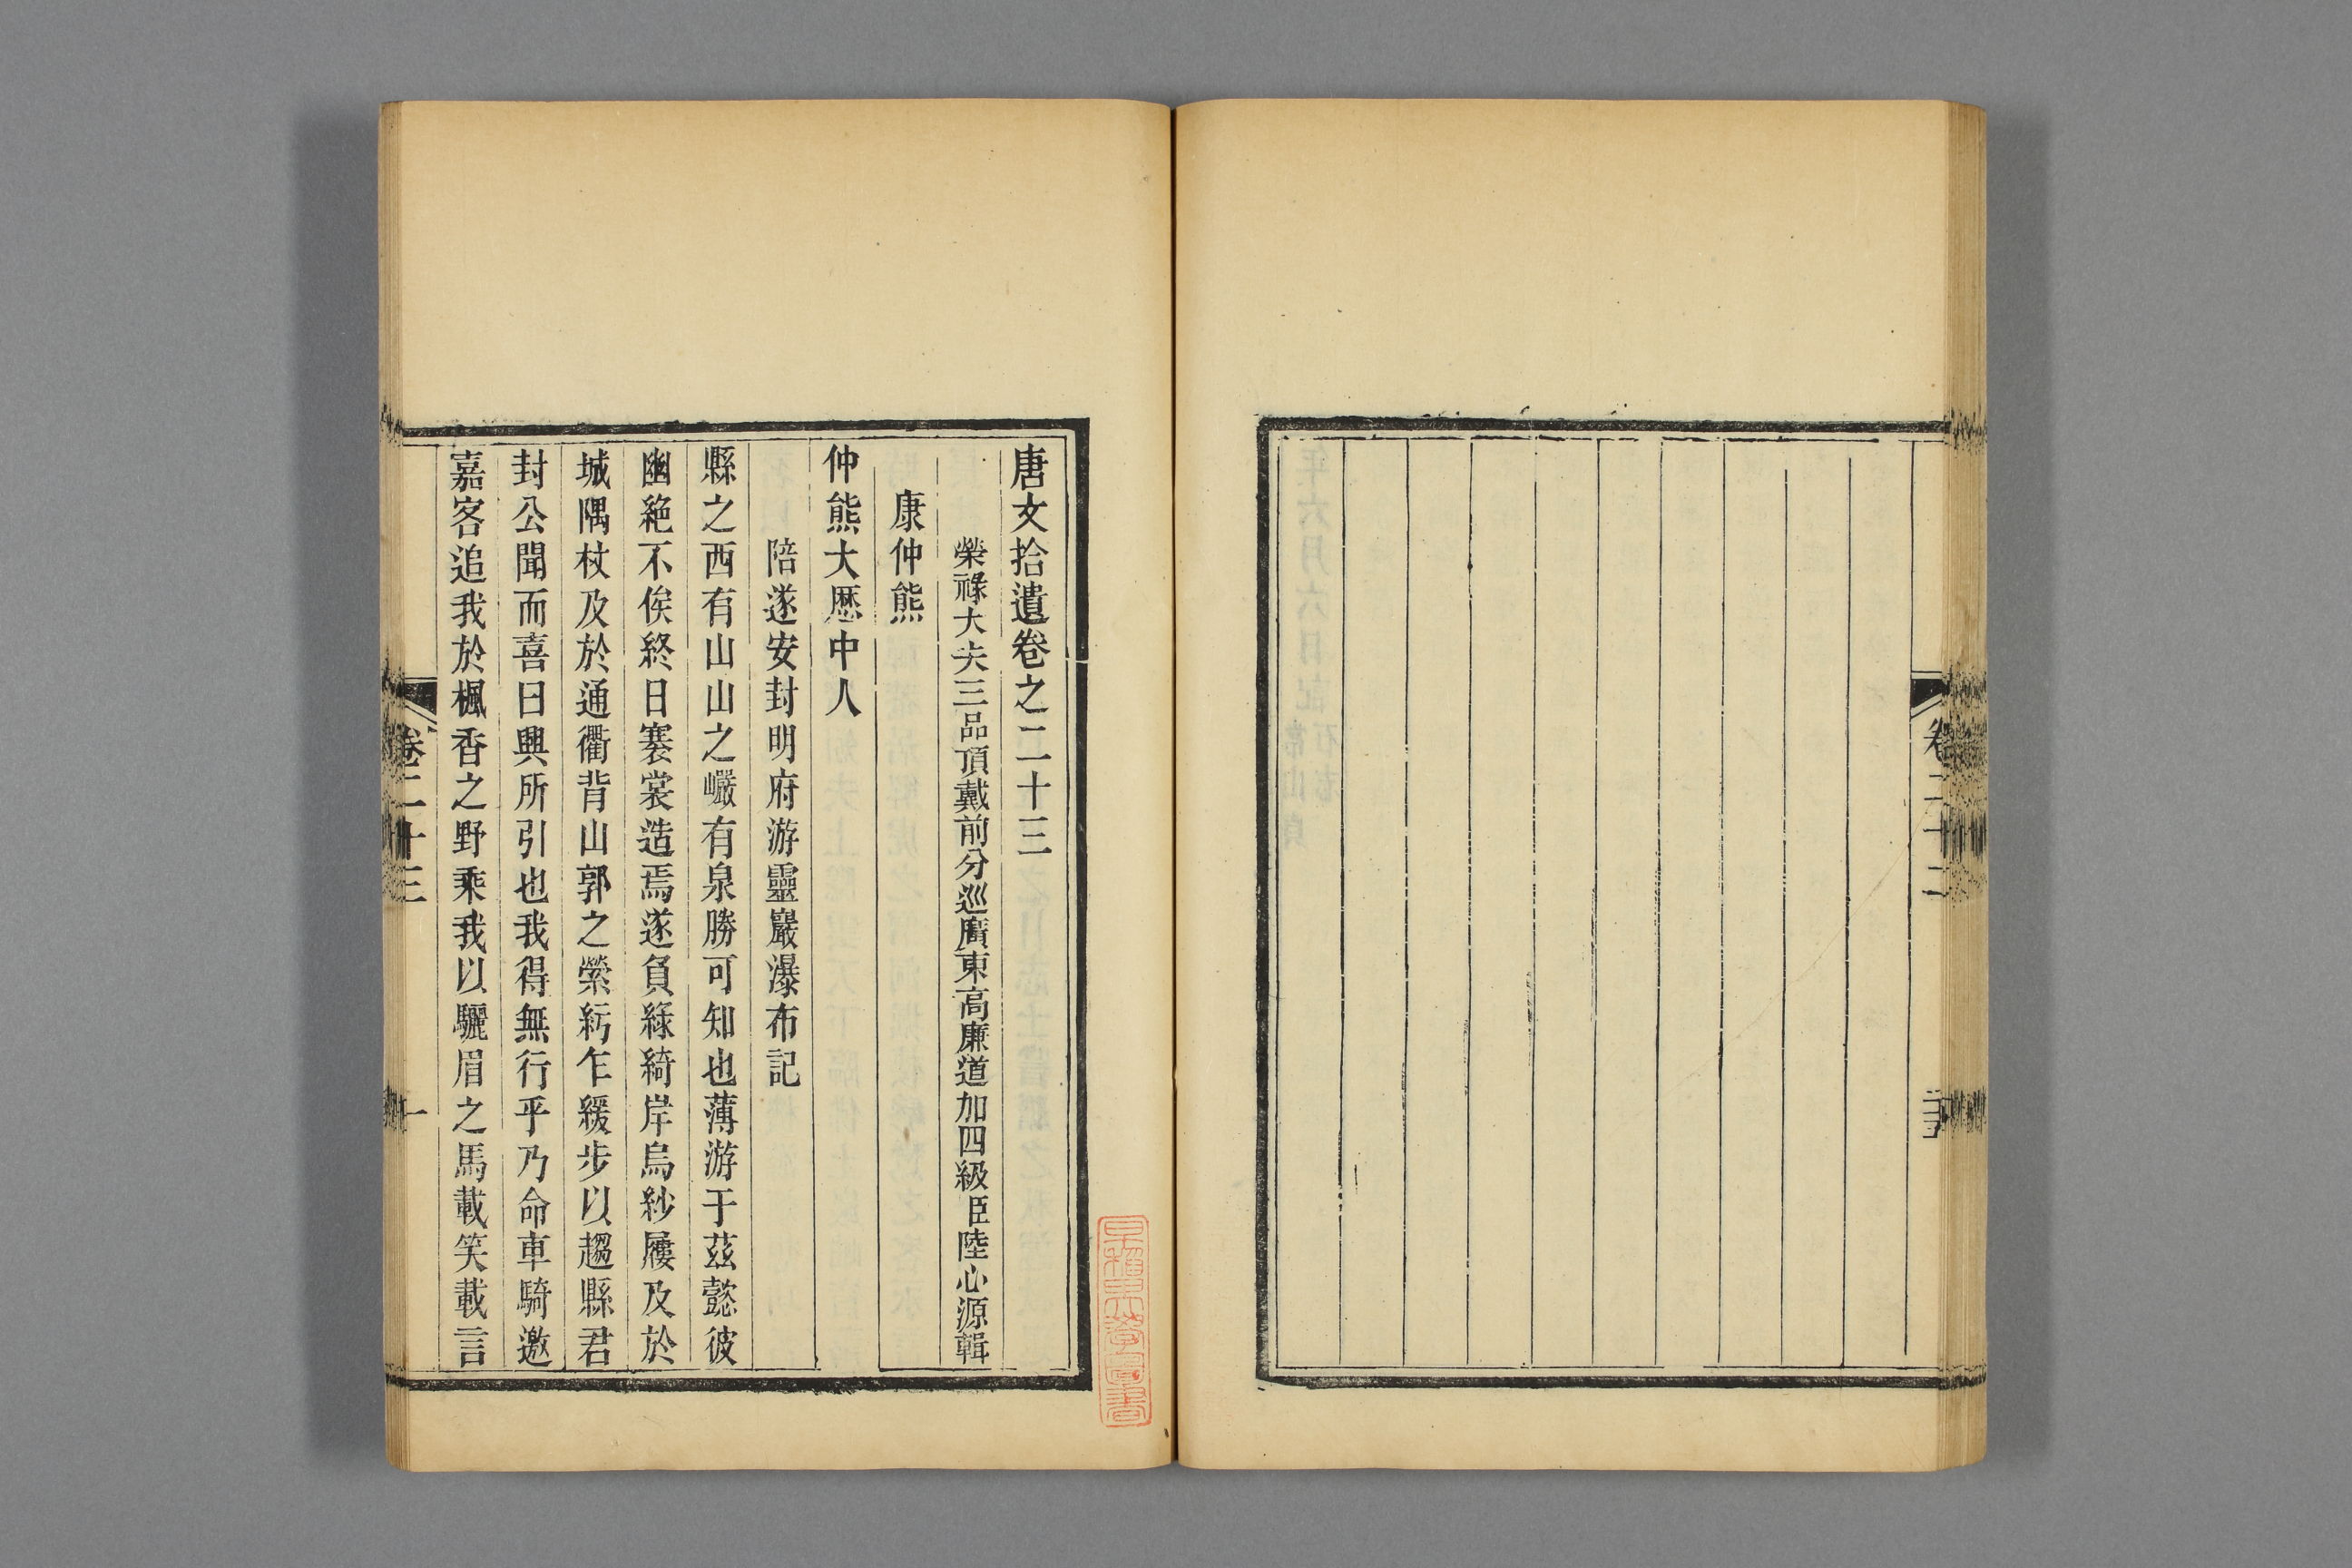 卷二十二
唐文拾遺卷之二十三
榮祿大夫三品頂戴前分巡廣東高廉道加四級臣陸心源輯
康仲熊
仲熊大歷中人
陪遂安封明府游靈巖瀑布記
縣之西有山山之巘有泉勝可知也薄游于茲懿彼
幽絕不俟終日褰裳造焉遂負綠綺岸烏紗屨及於
城隅杖及於通衢背山郭之縈紆乍緩步以趨縣君
封公聞而喜曰興所引也我得無行乎乃命車騎邀
嘉客追我於楓香之野乘我以驪眉之馬載笑載言
卷二十三
一
早稻田大學圖書